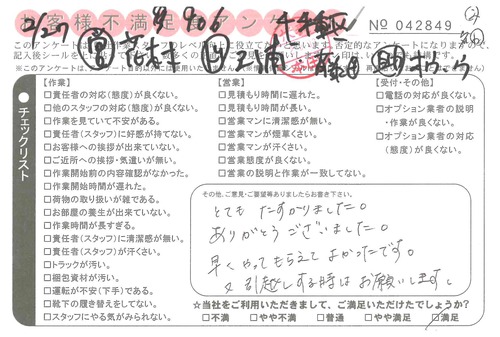 お客様不満足アンケート
No 042849
2/27
【作業】
□責任者の対応(態度)が良くない。
□他のスタッフの対応(態度)が良くない。
□作業を見ていて不安がある。
□責任者(スタッフ)に好感が持てない。
□お客様への挨拶が出来ていない。
□ご近所への挨拶・気遣いが無い。
□作業開始前の内容確認がなかった。
□作業開始時間が遅れた。
□荷物の取り扱いが雑である。
□お部屋の養生が出来ていない。
□作業時間が長すぎる。
□責任者(スタッフ)に清潔感が無い。
□責任者(スタッフ)が汗くさい。
□トラックが汚い。
□梱包資材が汚い。
□運転が不安(下手)である。
□靴下の履き替えをしてない。
□スタッフにやる気がみられない。
【営業】
□見積もり時間に遅れた。
□見積もり時間が長い。
□営業マンに清潔感が無い。
□営業マンが煙草くさい。
□営業マンが汗くさい。
□営業態度が良くない。
□営業の説明と作業が一致してない。
【受付・その他】
□電話の対応が良くない。
□オプション業者の説明
・作業が良くない。
□オプション業者の対応
(態度)が良くない。
●チェックリスト
その他、ご意見・ご要望等ありましたらお書き下さい。
とても たすかりました。
ありがとうございました。
早くやってもらえてよかったです。
又引越しする時はお願いします。
☆当社をご利用いただきまして、ご満足いただけたでしょうか?
□不満 □やや不満 □普通 □やや満足 □満足